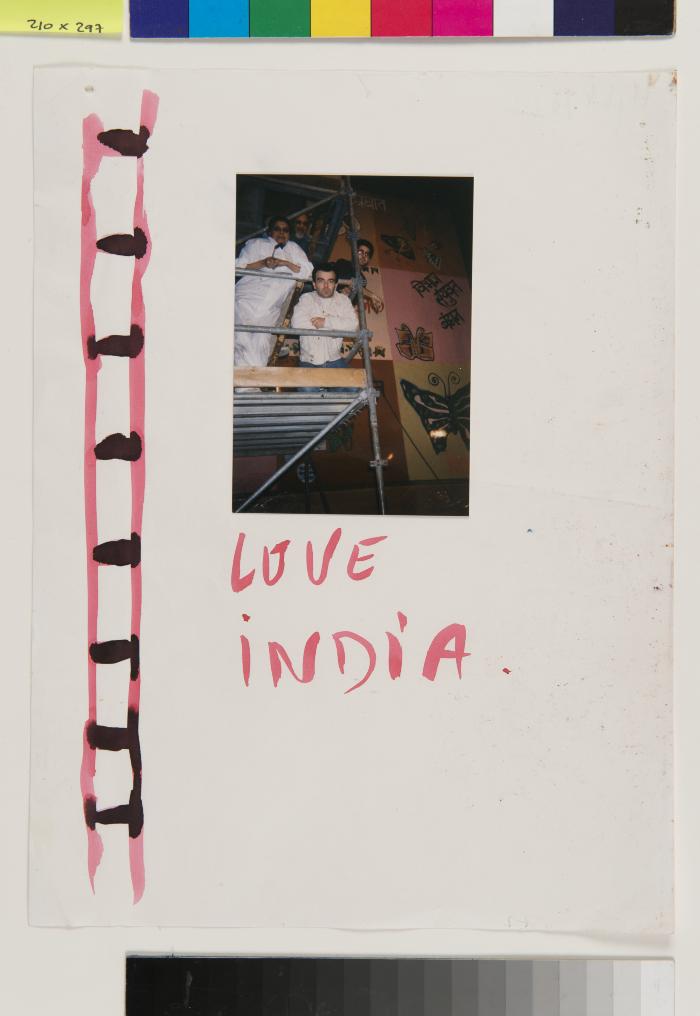 210 x 297
LOVE
INDIA.